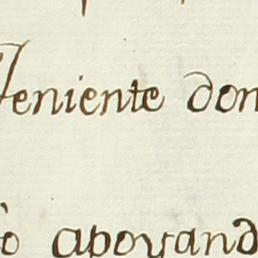 Teniente don
ò apoyand